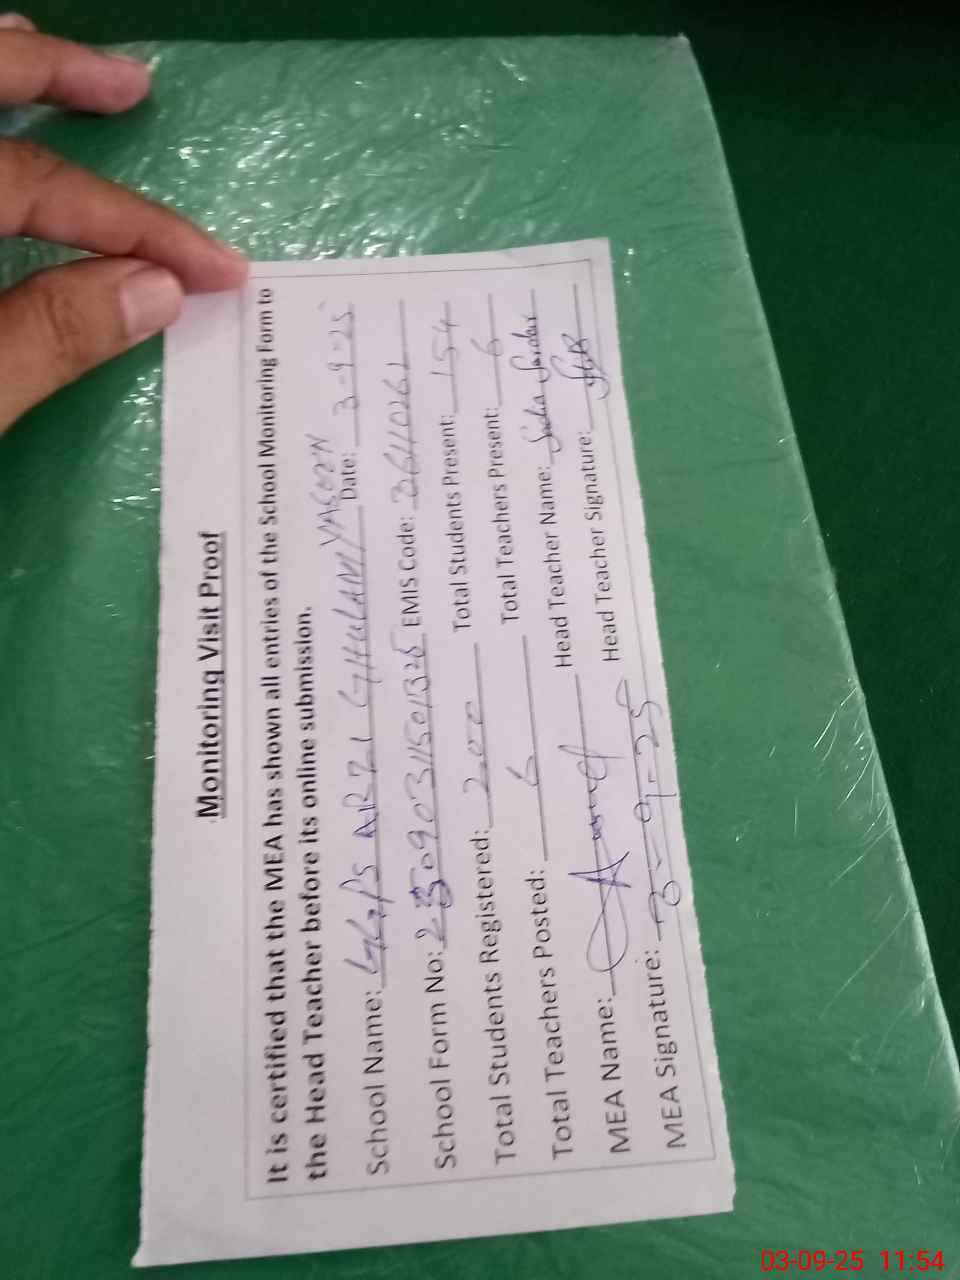 Monitoring Visit Proof
It is certified that the MEA has shown all entries of the School Monitoring Form to
the Head Teacher before its online submission.
School Name: GGPS ARZI GHULAM YASEEN Date: 3-9-25
School Form No: EMIS Code: 36110261
Total Students Registered: 200 Total Students Present: 154
Total Teachers Posted: 6 Total Teachers Present: 6
MEA Name: Head Teacher Name: Sidra Sardar
MEA Signature: 3-9-25 Head Teacher Signature:
03-09-25 11:54